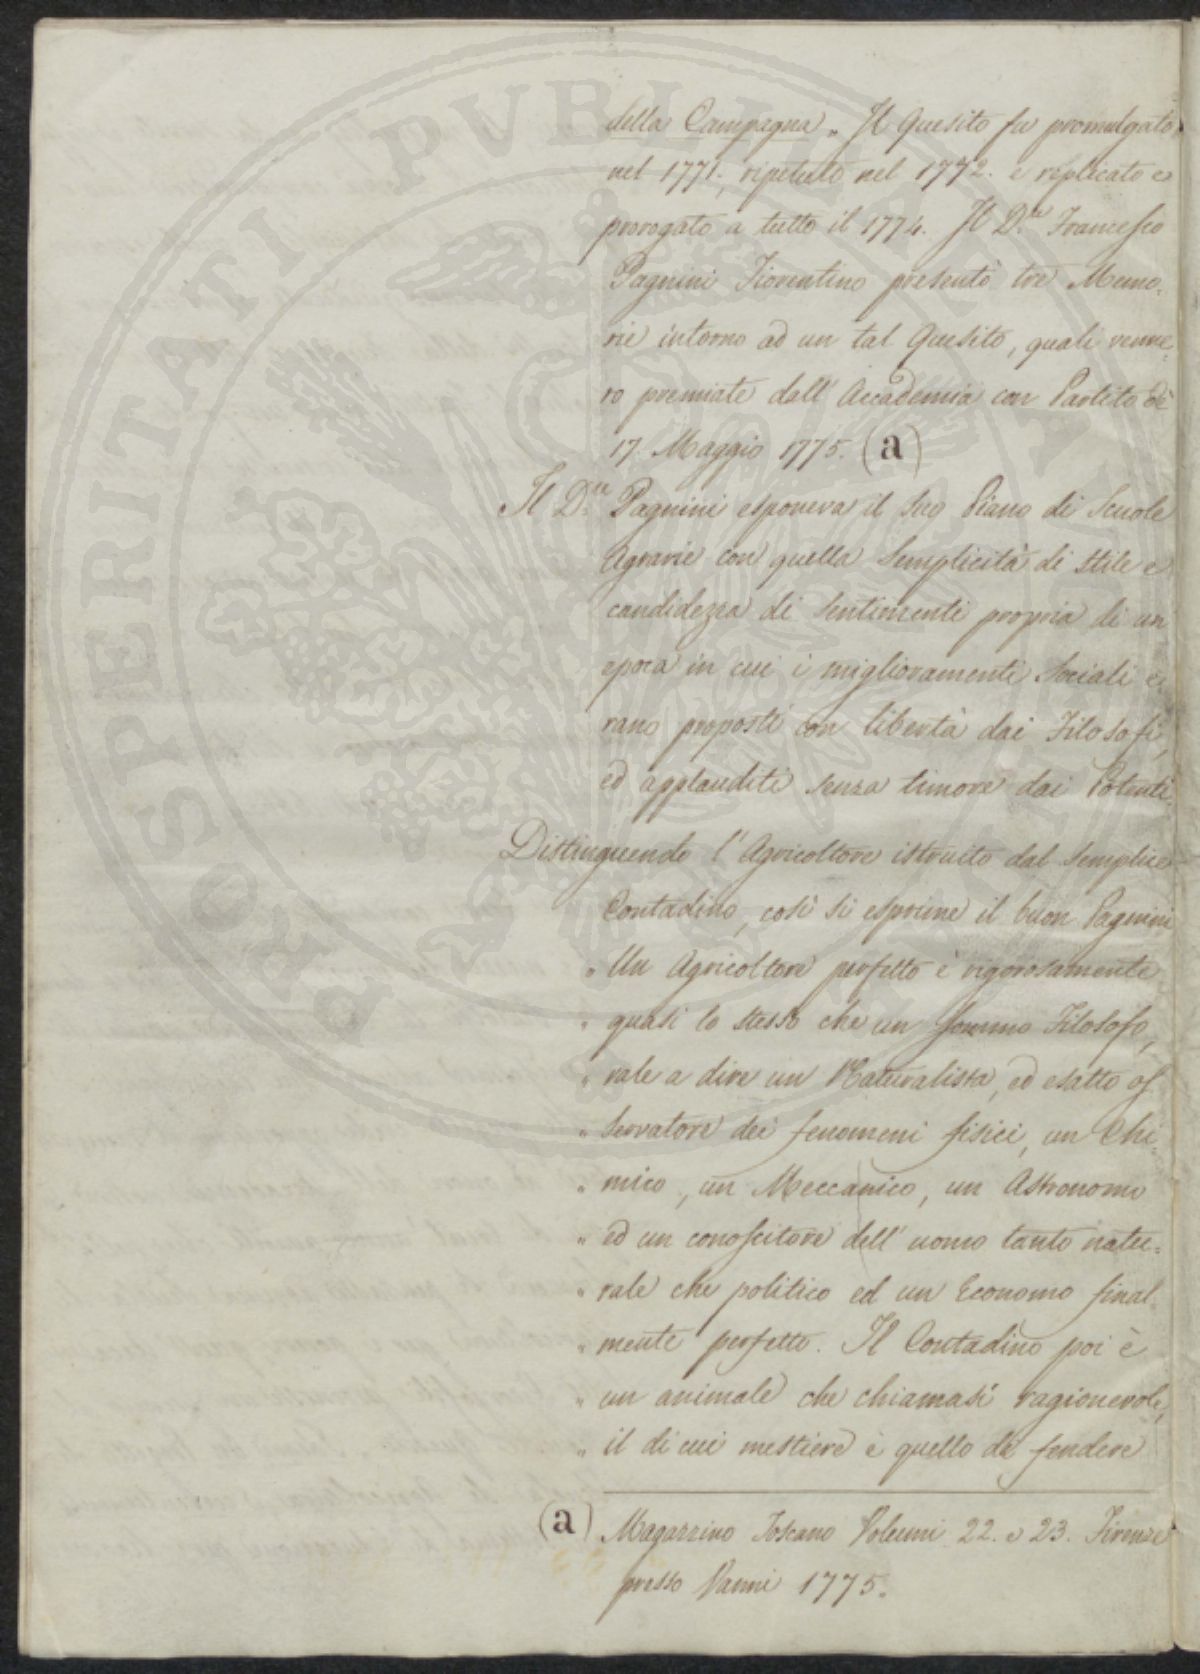 della Campagna „ Il Quesito fu promulgato
nel 1771., ripetuto nel 1772. e replicato e
prorogato a tutto il 1774. Il D.re Francesco
Pagnini Fiorentino presentò tre Memo-
rie intorno ad un tal Quesito, quali venne-
ro premiate dall' Accademia con Partito de'
17. Maggio 1775. (a)
Il D.re Pagnini esponeva il suo Piano di Scuole
Agrarie con quella semplicità di stile e
candidezza di sentimenti propria di un'
epoca in cui i miglioramenti sociali e-
rano proposti con libertà dai Filosofi,
ed applauditi senza timore dai Potenti.
Distinguendo l'Agricoltore istruito dal semplice
Contadino, così si esprime il buon Pagnini
„ Un Agricoltore perfetto è rigorosamente
„ quasi lo stesso che un sommo Filosofo,
„ vale a dire un Naturalista, ed esatto os-
„ servatore dei fenomeni fisici, un Chi-
„ mico, un Meccanico, un Astronomo
„ ed un conoscitore dell' uomo tanto natu-
„ rale che politico ed un Economo final-
„ mente perfetto. Il Contadino poi è
„ un animale che chiamasi ragionevole,
„ il di cui mestiere è quello di fendere
(a) Magazzino Toscano Volumi 22. e 23. Firenze
presso Vanni 1775.
PROSPERITATI PVBLICAE